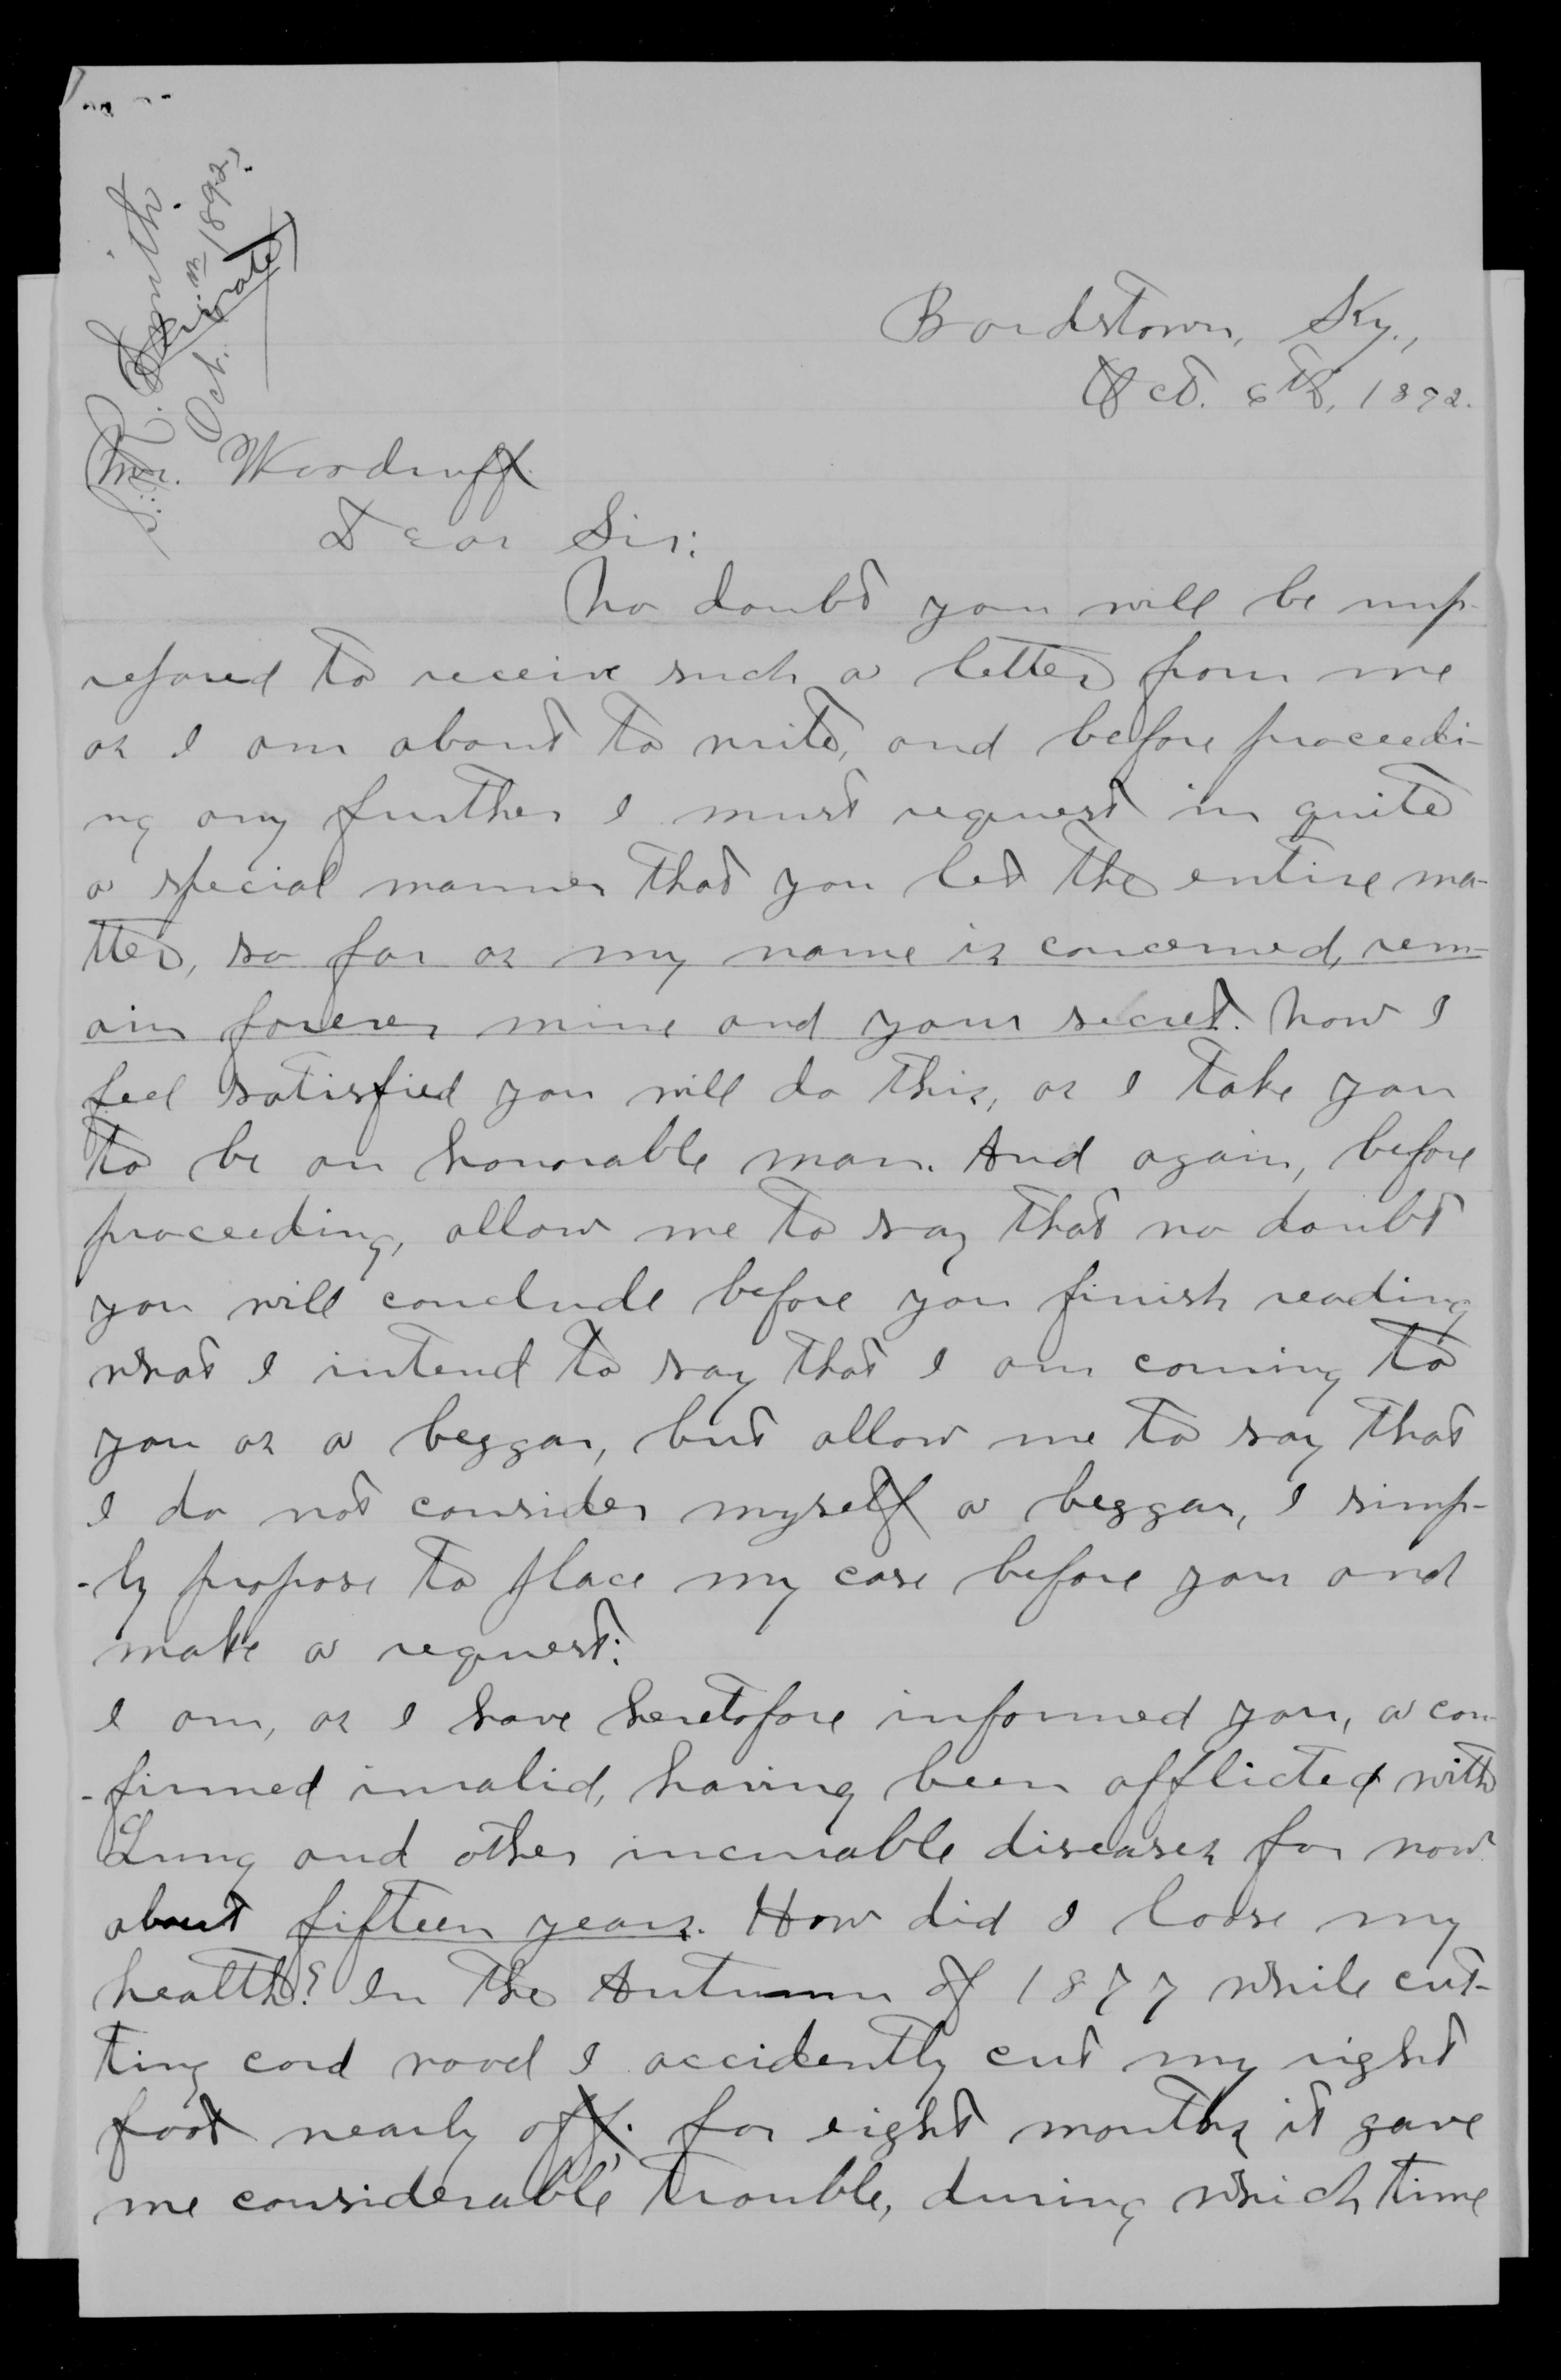 S. R. Smith.
Oct. 1892,
(Private)
Bardstown, Ky.,
Oct. 6th, 1892.
Mr. Woodruff.
Dear Sir:
No doubt you will be unp-
repared to receive such a letter from me
as I am about to write, and before proceedi-
ng any further I must request in quite
a special manner that you let the entire ma-
tter, so far as my name is concerned, rem-
ain forever mine and your secret. Now I
feel satisfied you will do this, as I take you
to be an honorable man. And again, before
proceeding, allow me to say that no doubt
you will conclude before you finish reading
what I intend to say that I am coming to
you as a beggar, but allow me to say that
I do not consider myself a beggar, I simp-
-ly propose to place my case before you and
make a request:
I am, as I have heretofore informed you, a con-
-firmed invalid, having been afflicted with
Lung and other incurable diseases for now
about fifteen years. How did I loose my
health? In the Autumn of 1877 while cut-
ting cord wood I accidently cut my right
foot nearly off; for eight months it gave
me considerable trouble, during which time